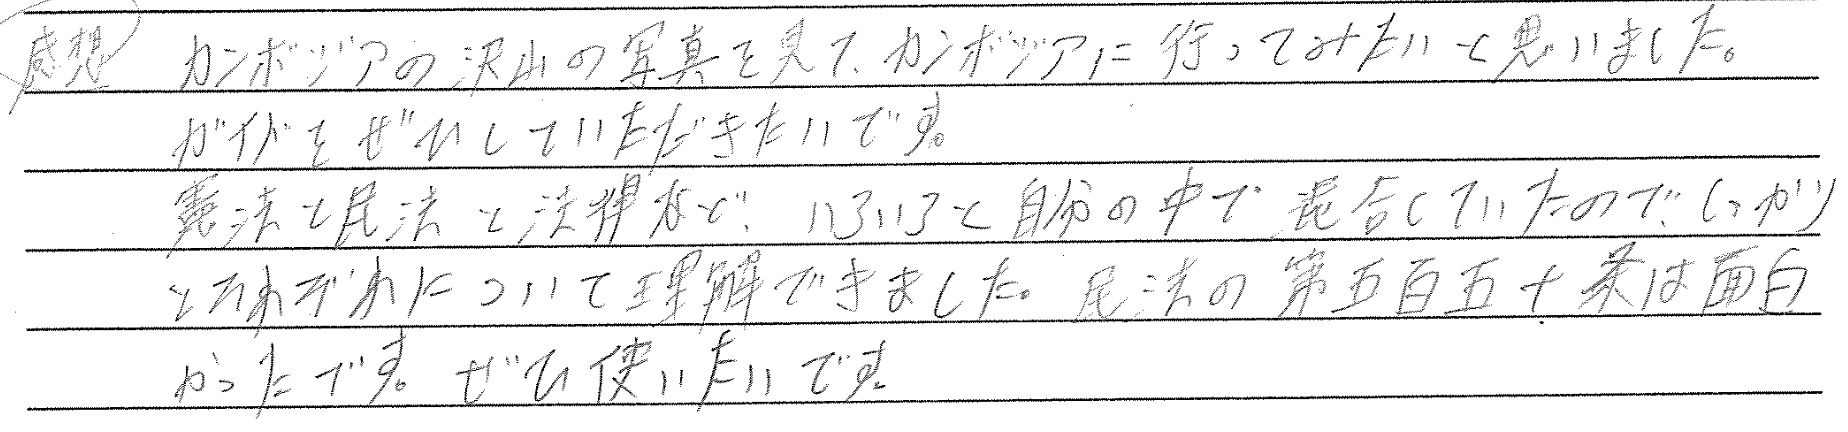 感想 カンボジアの沢山の写真を見て、カンボジアに行ってみたいと思いました。
ガイドをぜひしていただきたいです。
憲法と民法と法律など、いろいろと自分の中で混合していたので、しっかり
とそれぞれについて理解できました。民法の第五百五十条は面白
かったです。ぜひ使いたいです。